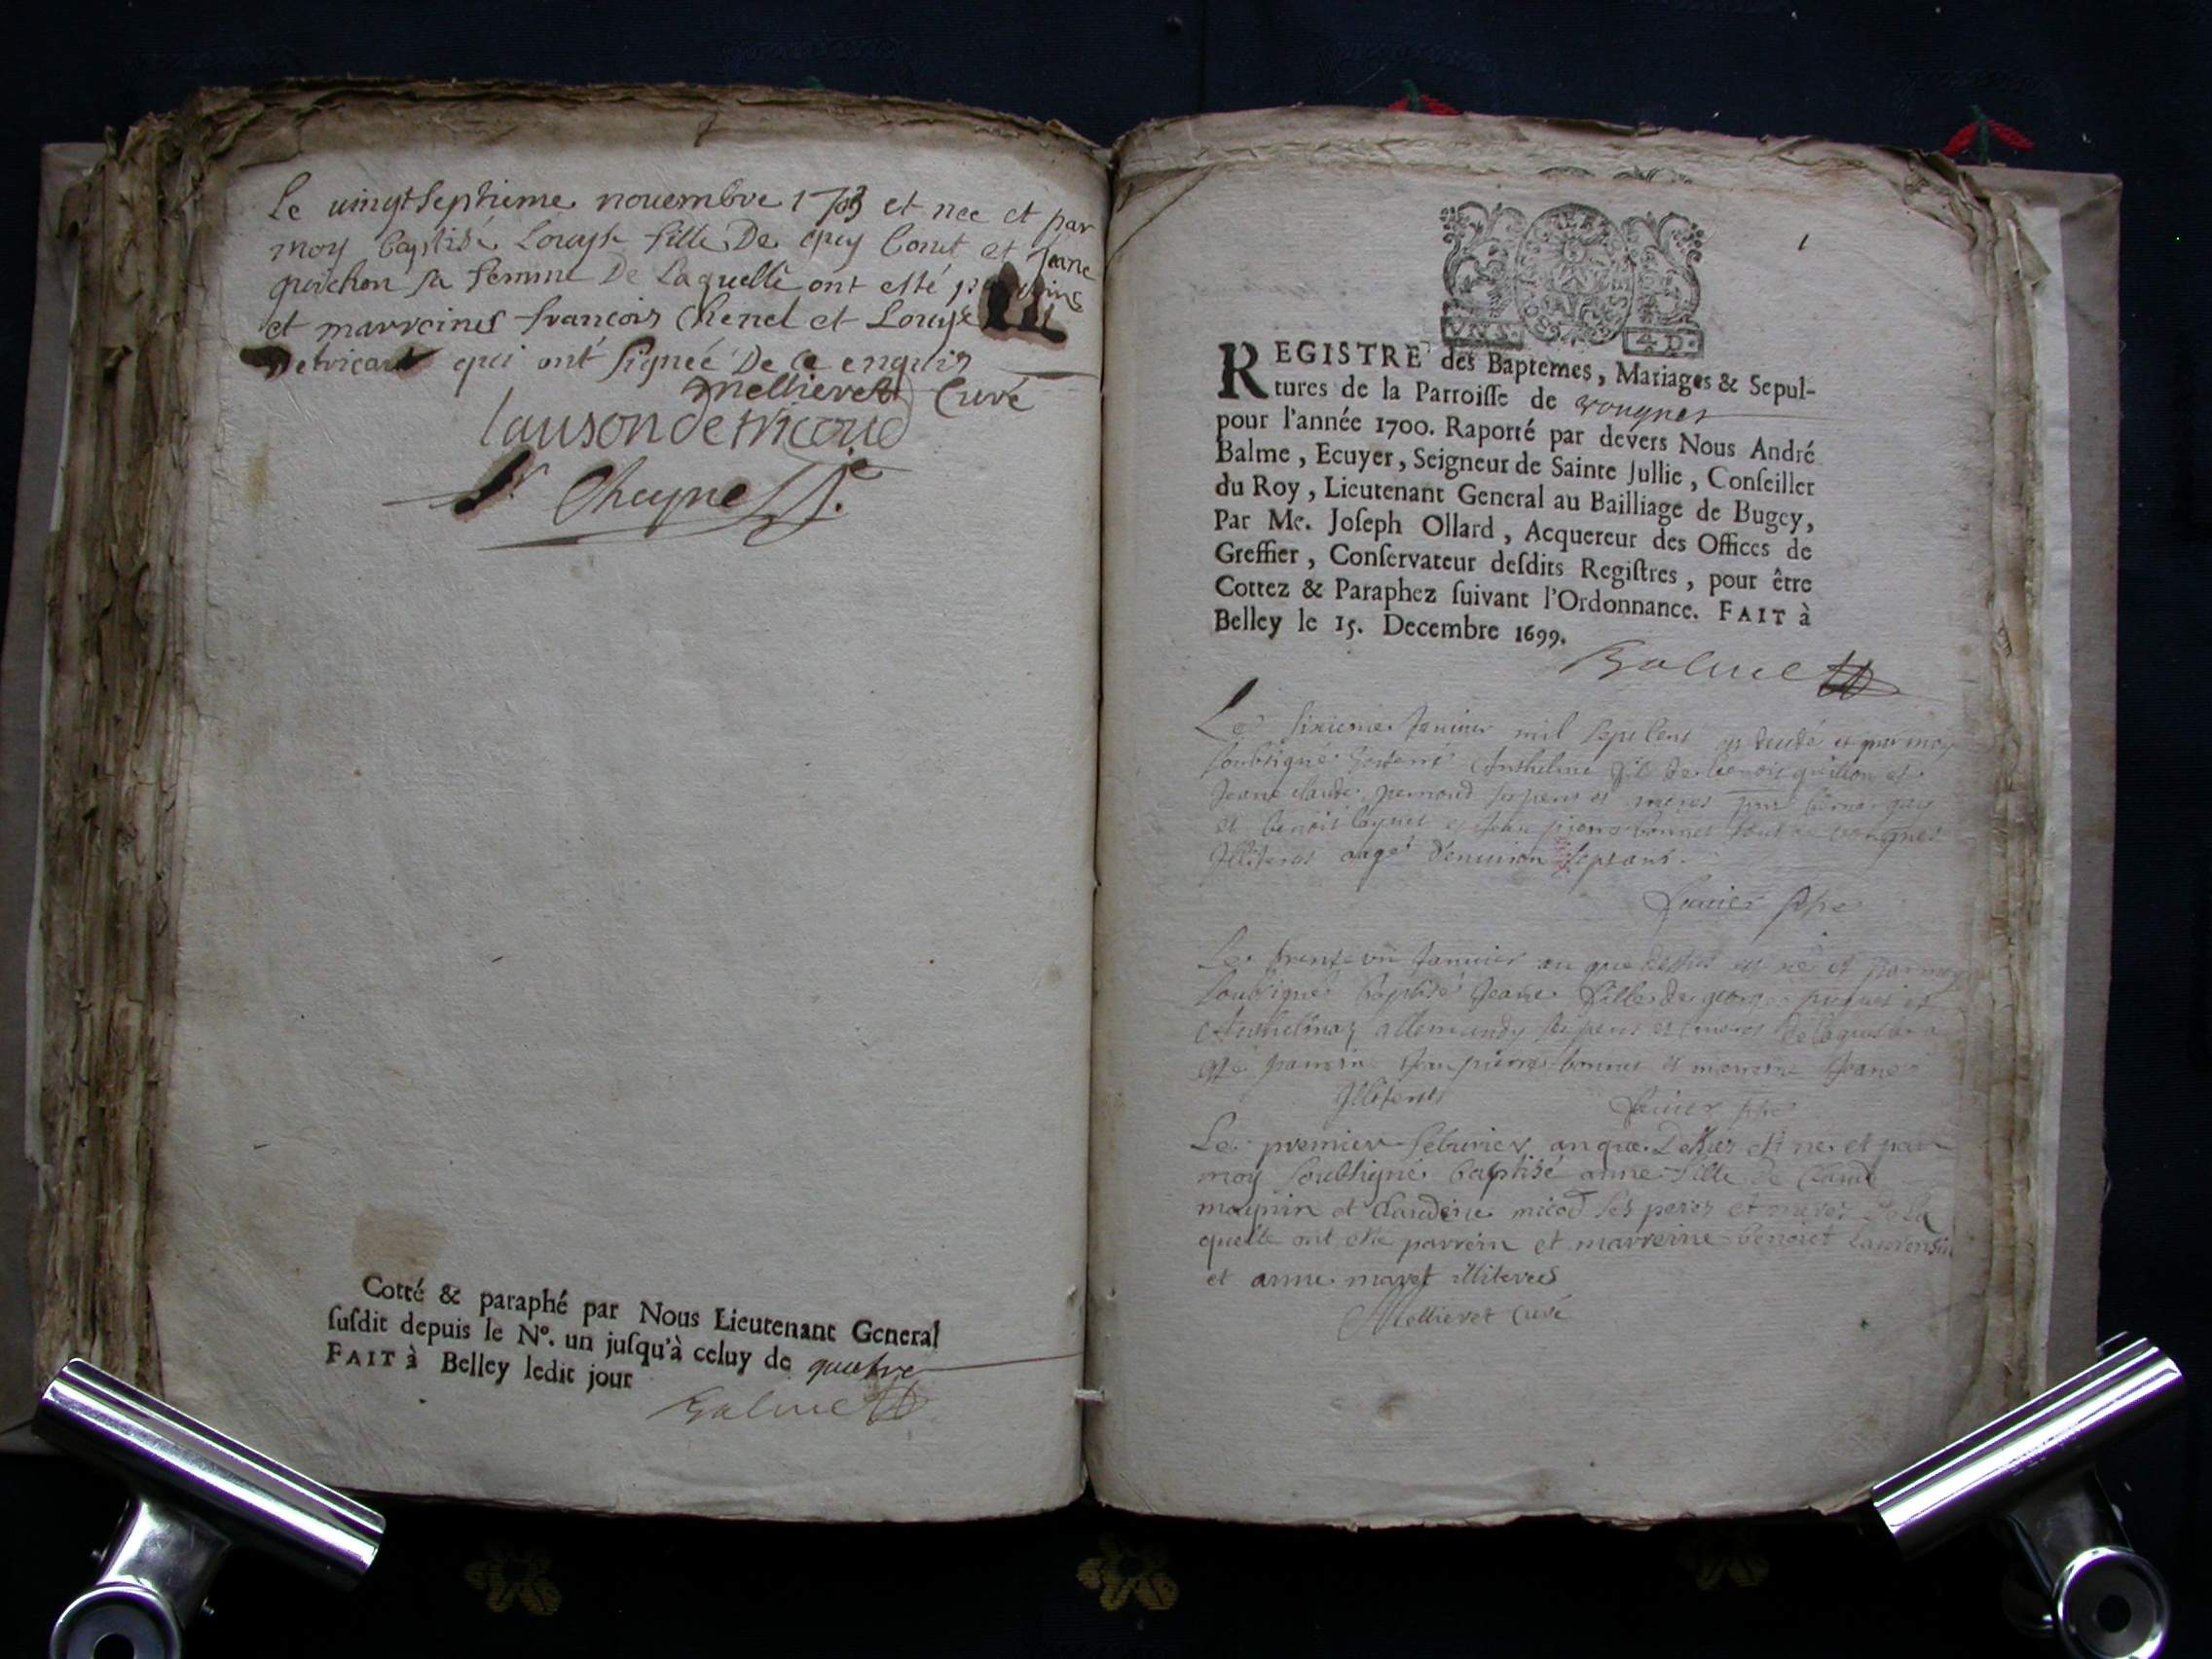 Le vingtseptieme novembre 1703 et nee et par
moy baptisé Louyse fille De Bonet et Jeane
sa femme De Laquelle ont esté
et marreines francois Chenel et Louyse
Detricaud qui ont signée De ce enquis
Mellieret Curé
lauson de tricoud
Cheynel
Cotté & paraphé par Nous Lieutenant General
ſuſdit depuis le N°. un juſqu'à celuy de quatre
FAIT à Belley ledit jour
Balme
1
VNS. 4D.
REGISTRE des Baptemes, Mariages & Sepul-
tures de la Parroiſſe de vougnes
pour l'année 1700. Raporté par devers Nous André
Balme, Ecuyer, Seigneur de Sainte Jullie, Conſeiller
du Roy, Lieutenant General au Bailliage de Bugey,
Par Me. Joſeph Ollard, Acquereur des Offices de
Greffier, Conſervateur deſdits Regiſtres, pour être
Cottez & Paraphez ſuivant l'Ordonnance. FAIT à
Belley le 15. Decembre 1699.
Balme
Le sixieme Janvier mil sept cent est decedé et par moy
soubsigné enterré Anthelme fils de benoit et
Jeane claude pernoud ses peres et meres
et benoit et Jean pierre bonnet tous de vougnes
Illiteres aagé d'environ sept ans.
Le trente un Janvier an que dessus est né et par moy
soubsigné baptisé Jeane fille de george et
Anthelmaz allemandy ses peres et meres de laquelle a
esté parrein Jean pierre bonnet et marreine Jeane
Illiteres
Le premier febvrier an que Dessus est né et par
moy soubsigné baptisé anne fille de Claude
maynin et Claudine micod ses peres et meres De La
quelle ont esté parrein et marreine benoist Laurensin
et anne maret illiterees
Mellieret Curé